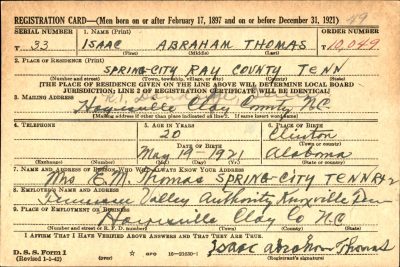 REGISTRATION CARD—(Men born on or after February 17, 1897 and on or before December 31, 1921)
SERIAL NUMBER 1. NAME (Print) ORDER NUMBER
T 33 ISAAC ABRAHAM THOMAS 10,049
2. PLACE OF RESIDENCE (Print)
SPRING-CITY RAY COUNTY TENN
(Number and street) (Town, township, village, or city) (County) (State)
[THE PLACE OF RESIDENCE GIVEN ON THE LINE ABOVE WILL DETERMINE LOCAL BOARD
JURISDICTION; LINE 2 OF REGISTRATION CERTIFICATE WILL BE IDENTICAL]
3. MAILING ADDRESS
Hayesville Clay County N.C.
(Mailing address if other than place indicated on line 2. If same insert word same)
4. TELEPHONE 5. AGE IN YEARS 6. PLACE OF BIRTH
20 Clinton
DATE OF BIRTH (Town or county)
May 19-1921 Alabama
(Exchange) (Number) (Mo.) (Day) (Yr.) (State or country)
7. NAME AND ADDRESS OF PERSON WHO WILL ALWAYS KNOW YOUR ADDRESS
Mrs E.M. Thomas SPRING-CITY TENN R#2
8. EMPLOYER'S NAME AND ADDRESS
Tennessee Valley Authority Knoxville Tenn
9. PLACE OF EMPLOYMENT OR BUSINESS
Hayesville Clay Co N.C.
(Number and street or R. F. D. number) (Town) (County) (State)
I AFFIRM THAT I HAVE VERIFIED ABOVE ANSWERS AND THAT THEY ARE TRUE.
Isaac Abraham Thomas
D. S. S. Form 1
(Revised 1-1-42) (over) 16—21630-1 (Registrant's signature)